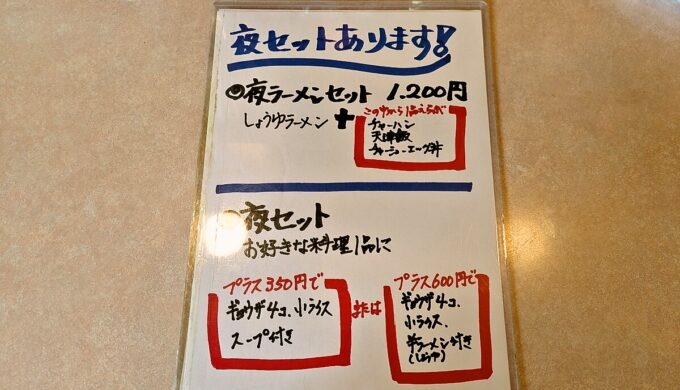 夜セットあります!
●夜ラーメンセット 1,200円
しょうゆラーメン +
この中から1品えらべ
チャーハン
天津飯
チャーシューエッグ丼
●夜セット
お好きな料理1品に
プラス350円で
ギョウザ4コ、小ライス
スープ付き
または
プラス600円で
ギョウザ4コ、
小ライス、
半ラーメン付き
(しょうゆ)